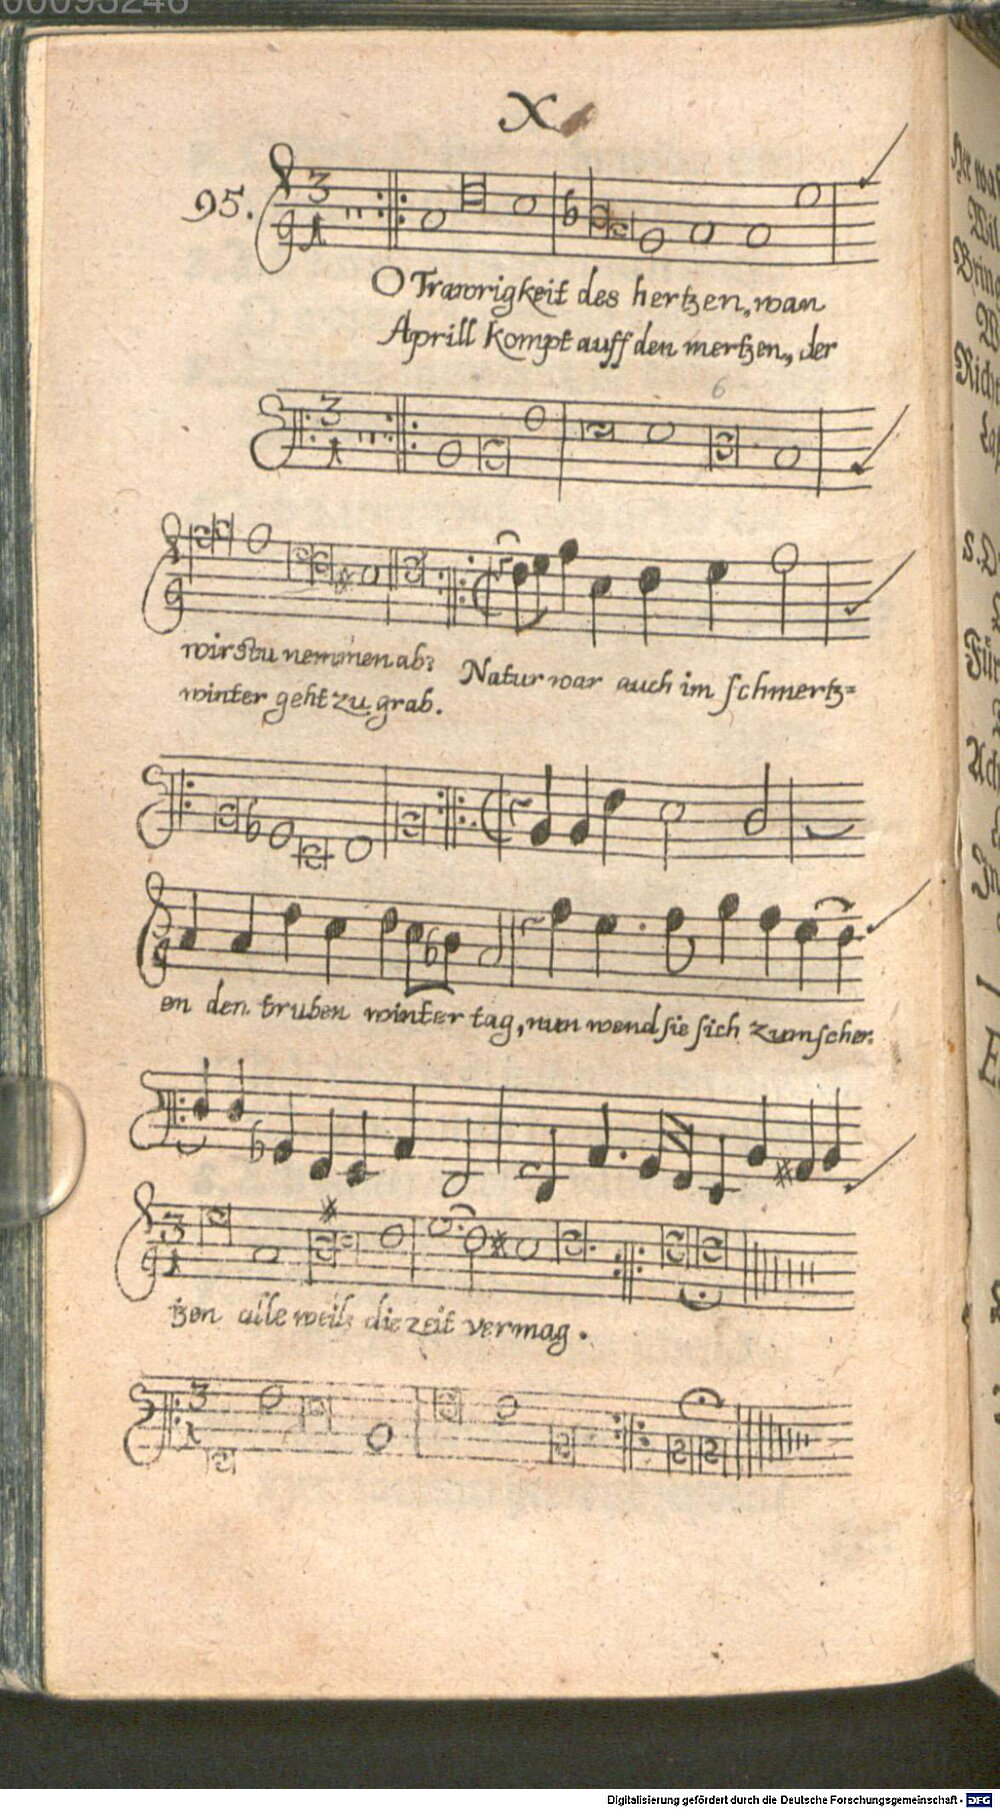 00093246
X.
95.
O Trawrigkeit des hertzen, wan
Aprill kompt auff den mertzen, der
6
wirstu nemmen ab?
winter geht zu grab.
Natur war auch im schmertz=
en den truben winter tag, nun wend sie sich zum scher.
tzen alle weil die zeit vermag.
Digitalisierung gefördert durch die Deutsche Forschungsgemeinschaft - DFG